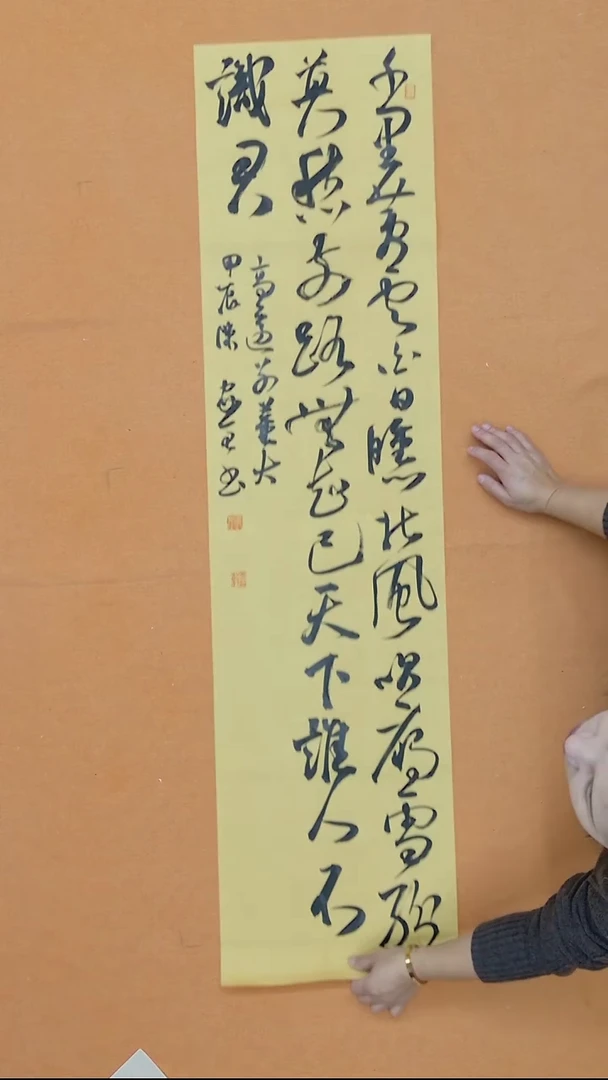 千里黄雲白日曛北風吹雁雪紛
莫愁前路無知己天下誰人不
識君
高適别董大
甲辰 书